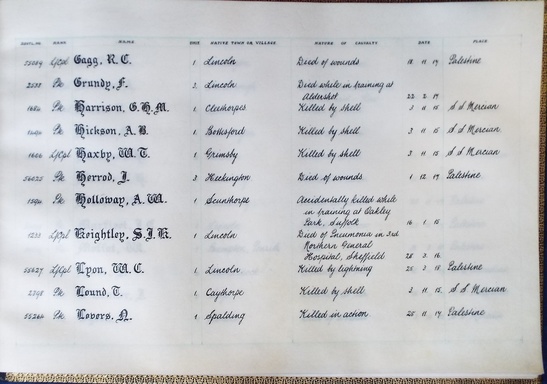 REGTL. NO. RANK NAME UNIT NATIVE TOWN OR VILLAGE NATURE OF CASUALTY DATE PLACE
L/Cpl Gagg, R. C. 1 Lincoln Died of wounds Palestine
Pte Grundy, F. 2 Lincoln Died while in training at
Aldershot
Pte Harrison, G. H. M. 1 Cleethorpes Killed by shell 3 11 15 S S Mercian
Pte Hickson, A. B. 1 Bottesford Killed by shell 3 11 15 S S Mercian
L/Cpl Haxby, W. T. 1 Grimsby Killed by shell 3 11 15 S S Mercian
Pte Herrod, J. Heckington Died of wounds 1 12 17 Palestine
Pte Holloway, A. W. 1 Scunthorpe Accidentally killed while
in training at Oakley
Park, Suffolk 16 1 15
L/Cpl Keightley, S. J. K. 1 Lincoln Died of Pneumonia in 3rd
Northern General
Hospital, Sheffield 28 3 16
L/Cpl Lyon, W. C. 1 Lincoln Killed by lightning 25 3 18 Palestine
Pte Lound, T. 1 Caythorpe Killed by shell 3 11 15 S S Mercian
Pte Lovers, N. 1 Spalding Killed in action 25 11 17 Palestine